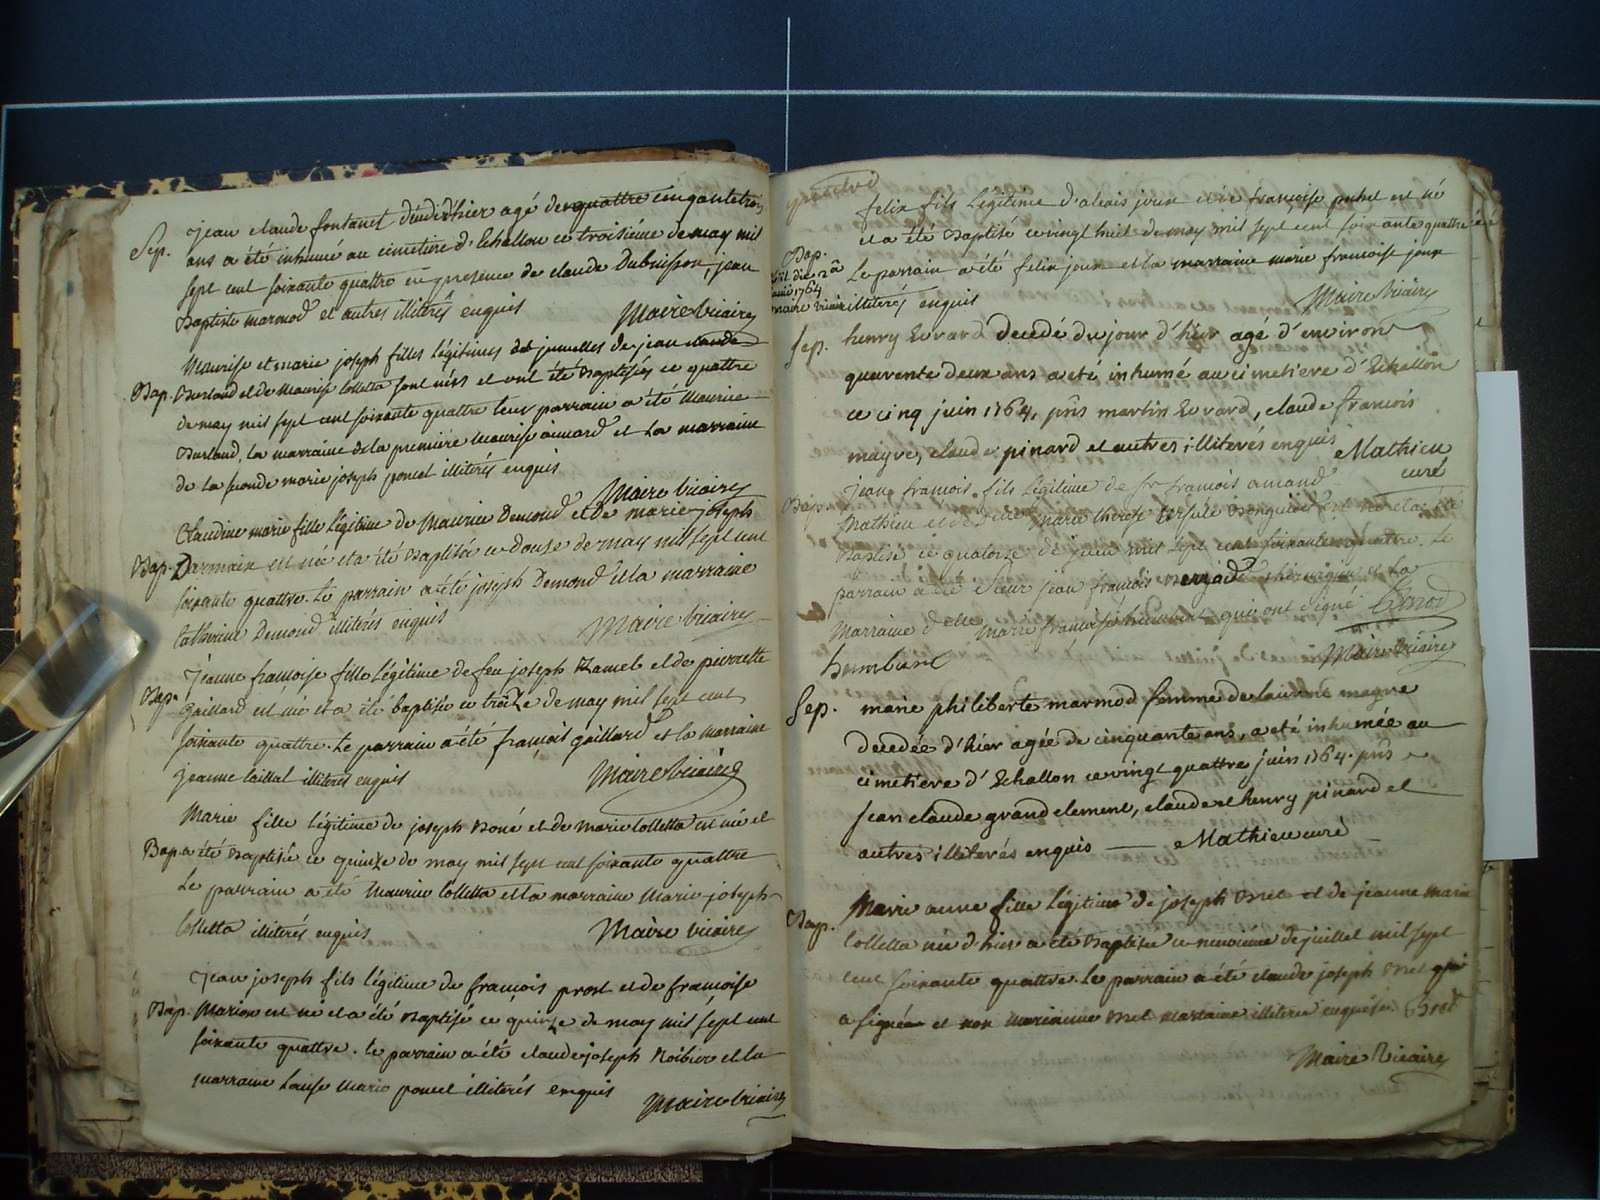 Sep. jean claude fontanet décédé hier agé de quattre cinquantetrois
ans a été inhumé au cimetiere d'Echallon ce troisiéme de may mil
sept cent soixante quattre en presence de claude Dubuisson, jean
Baptiste marmod et autres illiterés enquis Maire vicaire
Maurise et marie joseph filles légitimes jumelles de jean claude
Bap. Burland et de Maurise Colletta sont nées et ont été Baptisées ce quattre
de may mil sept cent soixante quattre leur parrain a été Maurice
Burland, la marraine de la premiére Maurise aimard et la marraine
de la seconde marie joseph poncet illiterés enquis
Maire vicaire
Claudine marie fille légitime de Maurice Demond et de marie joseph
Bap. Darmain est née et a été Baptisée ce douze de may mil sept cent
soixante quattre. Le parrain a été joseph Demond et la marraine
Catherine Demond illiterés enquis Maire vicaire
jeanne francoise fille légitime de feu joseph hamel et de pierrette
Bap. gaillard est née et a été baptisée ce treize de may mil sept cent
soixante quattre. Le parrain a été francois gaillard et la marraine
jeanne illiterés enquis Maire vicaire
Marie fille légitime de joseph Boné et de Marie Colletta est née et
Bap. a été Baptisée ce quinze de may mil sept cent soixante quattre
Le parrain a été Maurice Colletta et la marraine Marie joseph
Colletta illiterés enquis Maire vicaire
jean joseph fils légitime de francois prost et de francoise
Bap. Marion est né et a été Baptisé ce quinze de may mil sept cent
soixante quattre. le parrain a été claude joseph et la
marraine Louise Marie poncet illiterés enquis
Maire vicaire
felix fils légitime d'alexis joux et de francoise est né
et a été Baptisé ce vingt huit de may mil sept cent soixante quattre
Bap. Le parrain a été felix joux et la marraine marie francoise joux
illiterés enquis Maire vicaire
Sep. henry Evrard decedé du jour d'hier agé d'environ
quarente deux ans a eté inhumé au cimetiere d'Echallon
ce cinq juin 1764, pns martin Evrard, claude francois
mayre, claude pinard et autres illiterés enquis Mathieu
curé
Bap. jean francois fils légitime de sr francois amand
Mathieu et de marie therese Ursule est né et a été
Baptisé ce quatorze de juin mil sept cent soixante quattre. Le
parrain a été sieur jean francois et la
Marraine delle Marie francoise humbert qui ont signé
humbert Maire vicaire
Sep. marie philiberte marmod femme de laurent mayre
decedée d'hier agée de cinquante ans, a eté inhumée au
cimetiere d'Echallon ce vingt quattre juin 1764. pns
jean claude grandclement, claude et henry pinard et
autres illiterés enquis Mathieu curé
Marie anne fille légitime de joseph Bret et de jeanne marie
Bap. Colletta née d'hier a été Baptisée ce neuviéme de juillet mil sept
cent soixante quattre. Le parrain a été claude joseph Bret qui
a signé et non marraine illiterée enquise. Bret
Maire vicaire